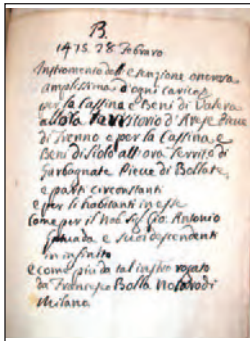 B.
1475. 28 Febraro
Instromento dell'esenzione onerosa
amplissima d'ogni carico
per la Cassina e Beni di Valera
allora Territorio d'Arese Pieve
di Trenno e per la Cassina e
Beni di Siolo all'ora Territo di
Garbagnate Pieve di Bollate,
e parti circonstanti
e per li habitanti in esse
Come per il Nob. Sig. Gio. Antonio
e suoi descendenti
in infinito
e come più da tal instro rogato
da Francesco Bolla Notaro di
Milano